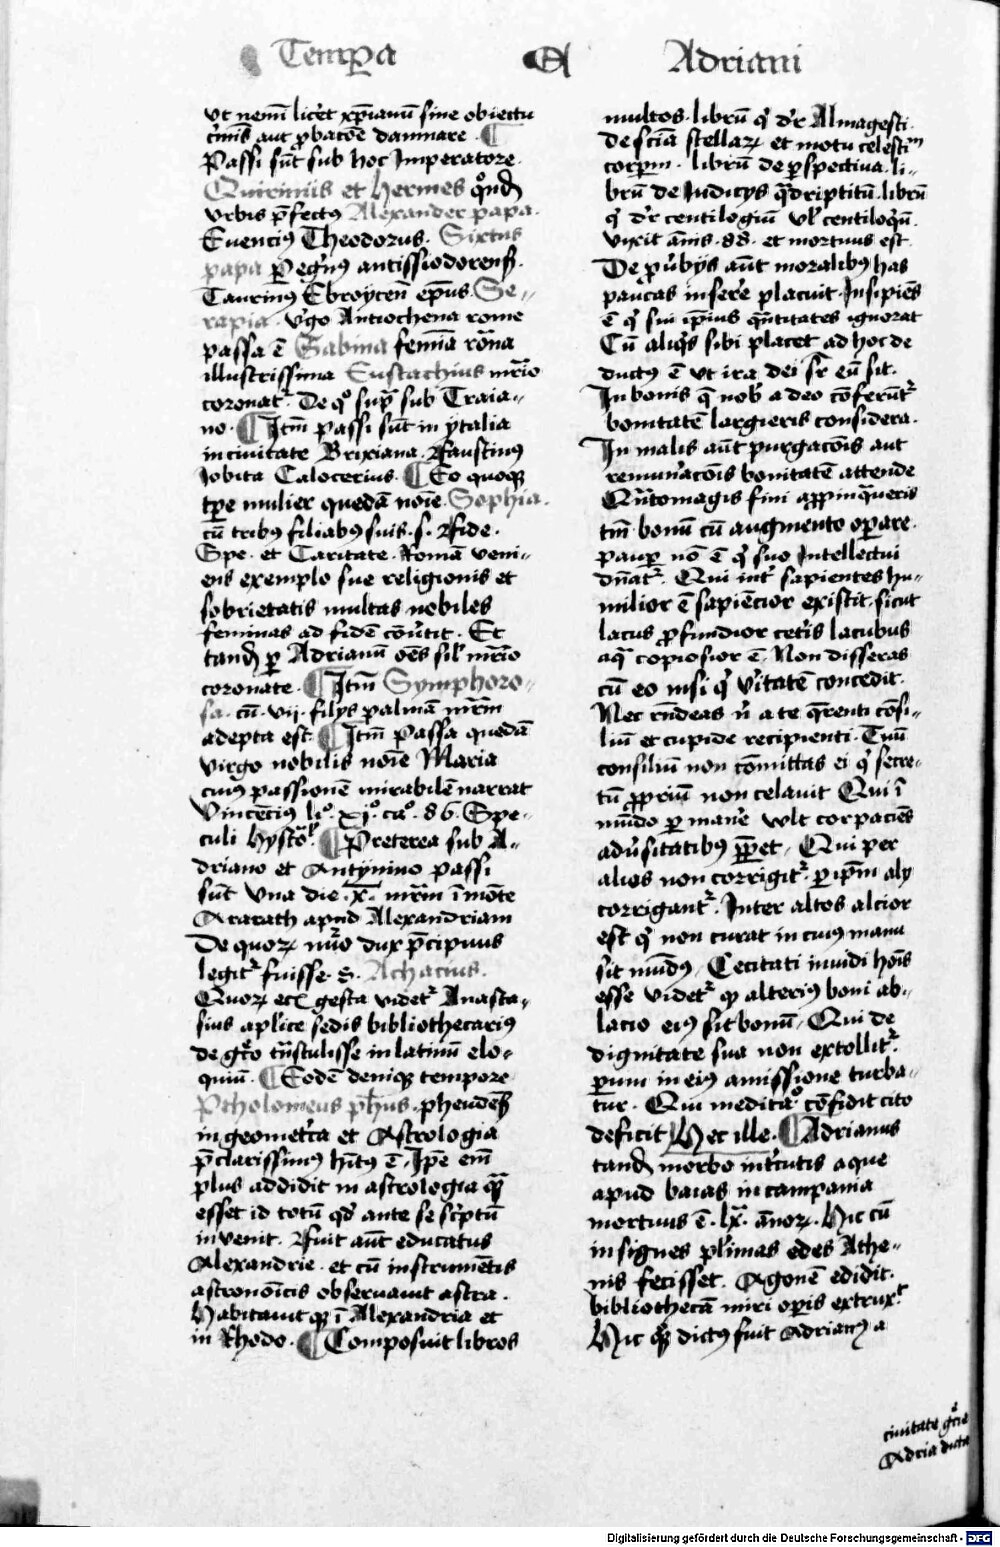 Tempa A Adriani
vt nemī licet xp̄ianū sine obiectu
c̄mīs aut ꝓbacōe damnare · ¶
Passi sūt sub hoc Imperatore ·
Quirinus et Hermes qn̄dā
vrbis p̄fectꝰ Alexander papa ·
Euenciꝰ Theodorus · Sixtus
papa Peg̃nꝰ antissiodorenß ·
Taurinꝰ Ebroyceñ ep̄us Se-
rapia · v̓go Antiochena rome
passa ē Sabina femīa rōna
illustrissima Eustachius mr̄io
coronatᷣ · De qͦ supᷓ sub Traia-
no · ¶ Itm̄ passi sūt in ytalia
in ciuitate Brixiana · Faustinꝰ
Jobita Calocerius · ¶ Eo quoqꝫ
tꝑe mulier quedā noīe Sophia ·
cū tribꝰ filiabꝰ suis · s · Fide ·
Spe · et Caritate · Romā veni-
ens exemplo sue religionis et
sobrietatis multas nobiles
feminas ad fidē cōu̓tit · Et
tandē ꝑ Adrianū oēs sil̓ mr̄io
coronate · ¶ Itm̄ Symphoro-
sa · cū · vij · filijs palmā mr̄ij
adepta est · ¶ Itm̄ Passa quedā
virgo nobilis noīe Maria
cuiꝰ passionē mirabilē narrat
Vincēciꝰ liͦ · xjͦ · caͦ · 86 · Spe-
culi hystoͬ · ¶ Preterea sub A-
driano et Antynino passi
sūt vna die · x̄ · mr̄m ī mōte
Ararath apud Alexandriam
De quoꝝ nūo dux p̄cipuus
legitᷣ fuisse · S · Achacius ·
Quoꝝ ecī gesta videtᷣ Anasta-
sius ap̄lice sedis bibliothecariꝰ
de gͨo tn̄stulisse in latinū elo-
quiū · ¶ Eodē deniqꝫ tempore
Ptholomeus ph̄us · pheudēß
in geometᷓia et Astrologia
p̄clarissimꝰ hītꝰ ē · Ip̄e em̄
plus addidit in astrologia qᷓꝫ
esset id totū qd̓ ante se sc̓ptū
inuenit · Fuit aūt educatus
Alexandrie · et cū instrumētis
astronōicis obseruauit astra ·
Habitauitqꝫ ī Alexandria et
in Rhodo · ¶ Composuit libros
multos · librū qͥ dr̄ Almagesti ·
de scīa stellaꝝ et motu celestiᵐ
corpꝝm · librū de ꝑspectiua · li-
brū de Iudicijs qᷓdriptitū · librū
qͥ dr̄ centilogiū vl̓ centiloqū ·
vixit ānis · 88 · et mortuus est
De ꝓu̓bijs aūt moralibꝰ has
paucas insere placuit · Insipiēs
ē qͥ sui ipīus qᷓntitates ignorat
Cū aliqͥs sibi placet ad hoc de
ductꝰ ē vt ira dei sr̄ eū sit ·
In bonis q̄ nob̓ a deo cōferūtᷣ
bonitatē largieris considera ·
In malis aūt purgacōis aut
remun̓acōis bonitatē attende
Qn̄tomagis fini appinqueris
tm̄ bonū cū augmento oꝑare ·
pauꝑ nō ē qͥ suo Intellectui
dn̄atᷣ · Qui int̓ sapientes hu-
milior ē sapiēcior existit · sicut
lacus ꝓfundior cet̓is lacubus
aqͣ copiosior ē · Non disseras
cū eo nisi qͥ v̓itatē concedit ·
Nec rn̄deas n̓ a te qͣrenti cōsi-
liū et cupide recipienti · Tuū
consiliū non cōmittas ei qͥ secre-
tū ꝓpriū non celauit Qui ī
mūdo ꝑmanere wlt cor paciēs
adu̓sitatibꝰ ꝑpet · Qui per
alios non corrigitᷣ · ꝑ ip̄m alij
corrigantᷣ · Inter altos alcior
est qͥ non curat in cuiꝰ manu
sit mūdꝰ · Cecitati inuidi hoīs
esse videtᷣ qꝙ alteriꝰ boni ab-
lacio eiꝰ sit bonū · Qui de
dignitate sua non extollitᷣ ·
parum in eiꝰ amissione turba-
tur · Qui meditaͦ͡ cōfidit cito
deficit Hec ille · ¶ Adrianus
tandē morbo int̓cutis aque
apud baias in campania
mortuus ē · lx̄ · ānoꝝ · Hic cū
insignes pl̓imas edes Athe-
nis fecisset · Agonē edidit ·
bibliothecā miri oꝑis extruxᵗ
Hic qͦqꝫ dictꝰ fuit Adrianꝰ a
ciuitate gͨcie
Adria dicta
Digitalisierung gefördert durch die Deutsche Forschungsgemeinschaft - DFG